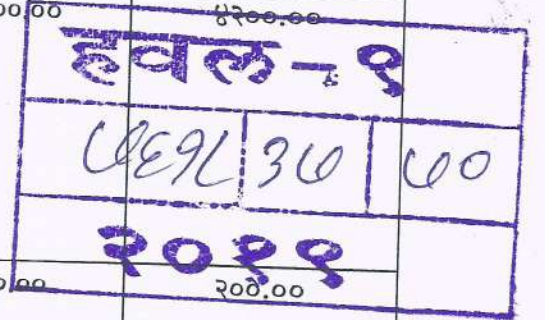 ००.०० ४२००.००
हवल-१
७६१८ ३७ ७०
२०११
०.०० २००.००